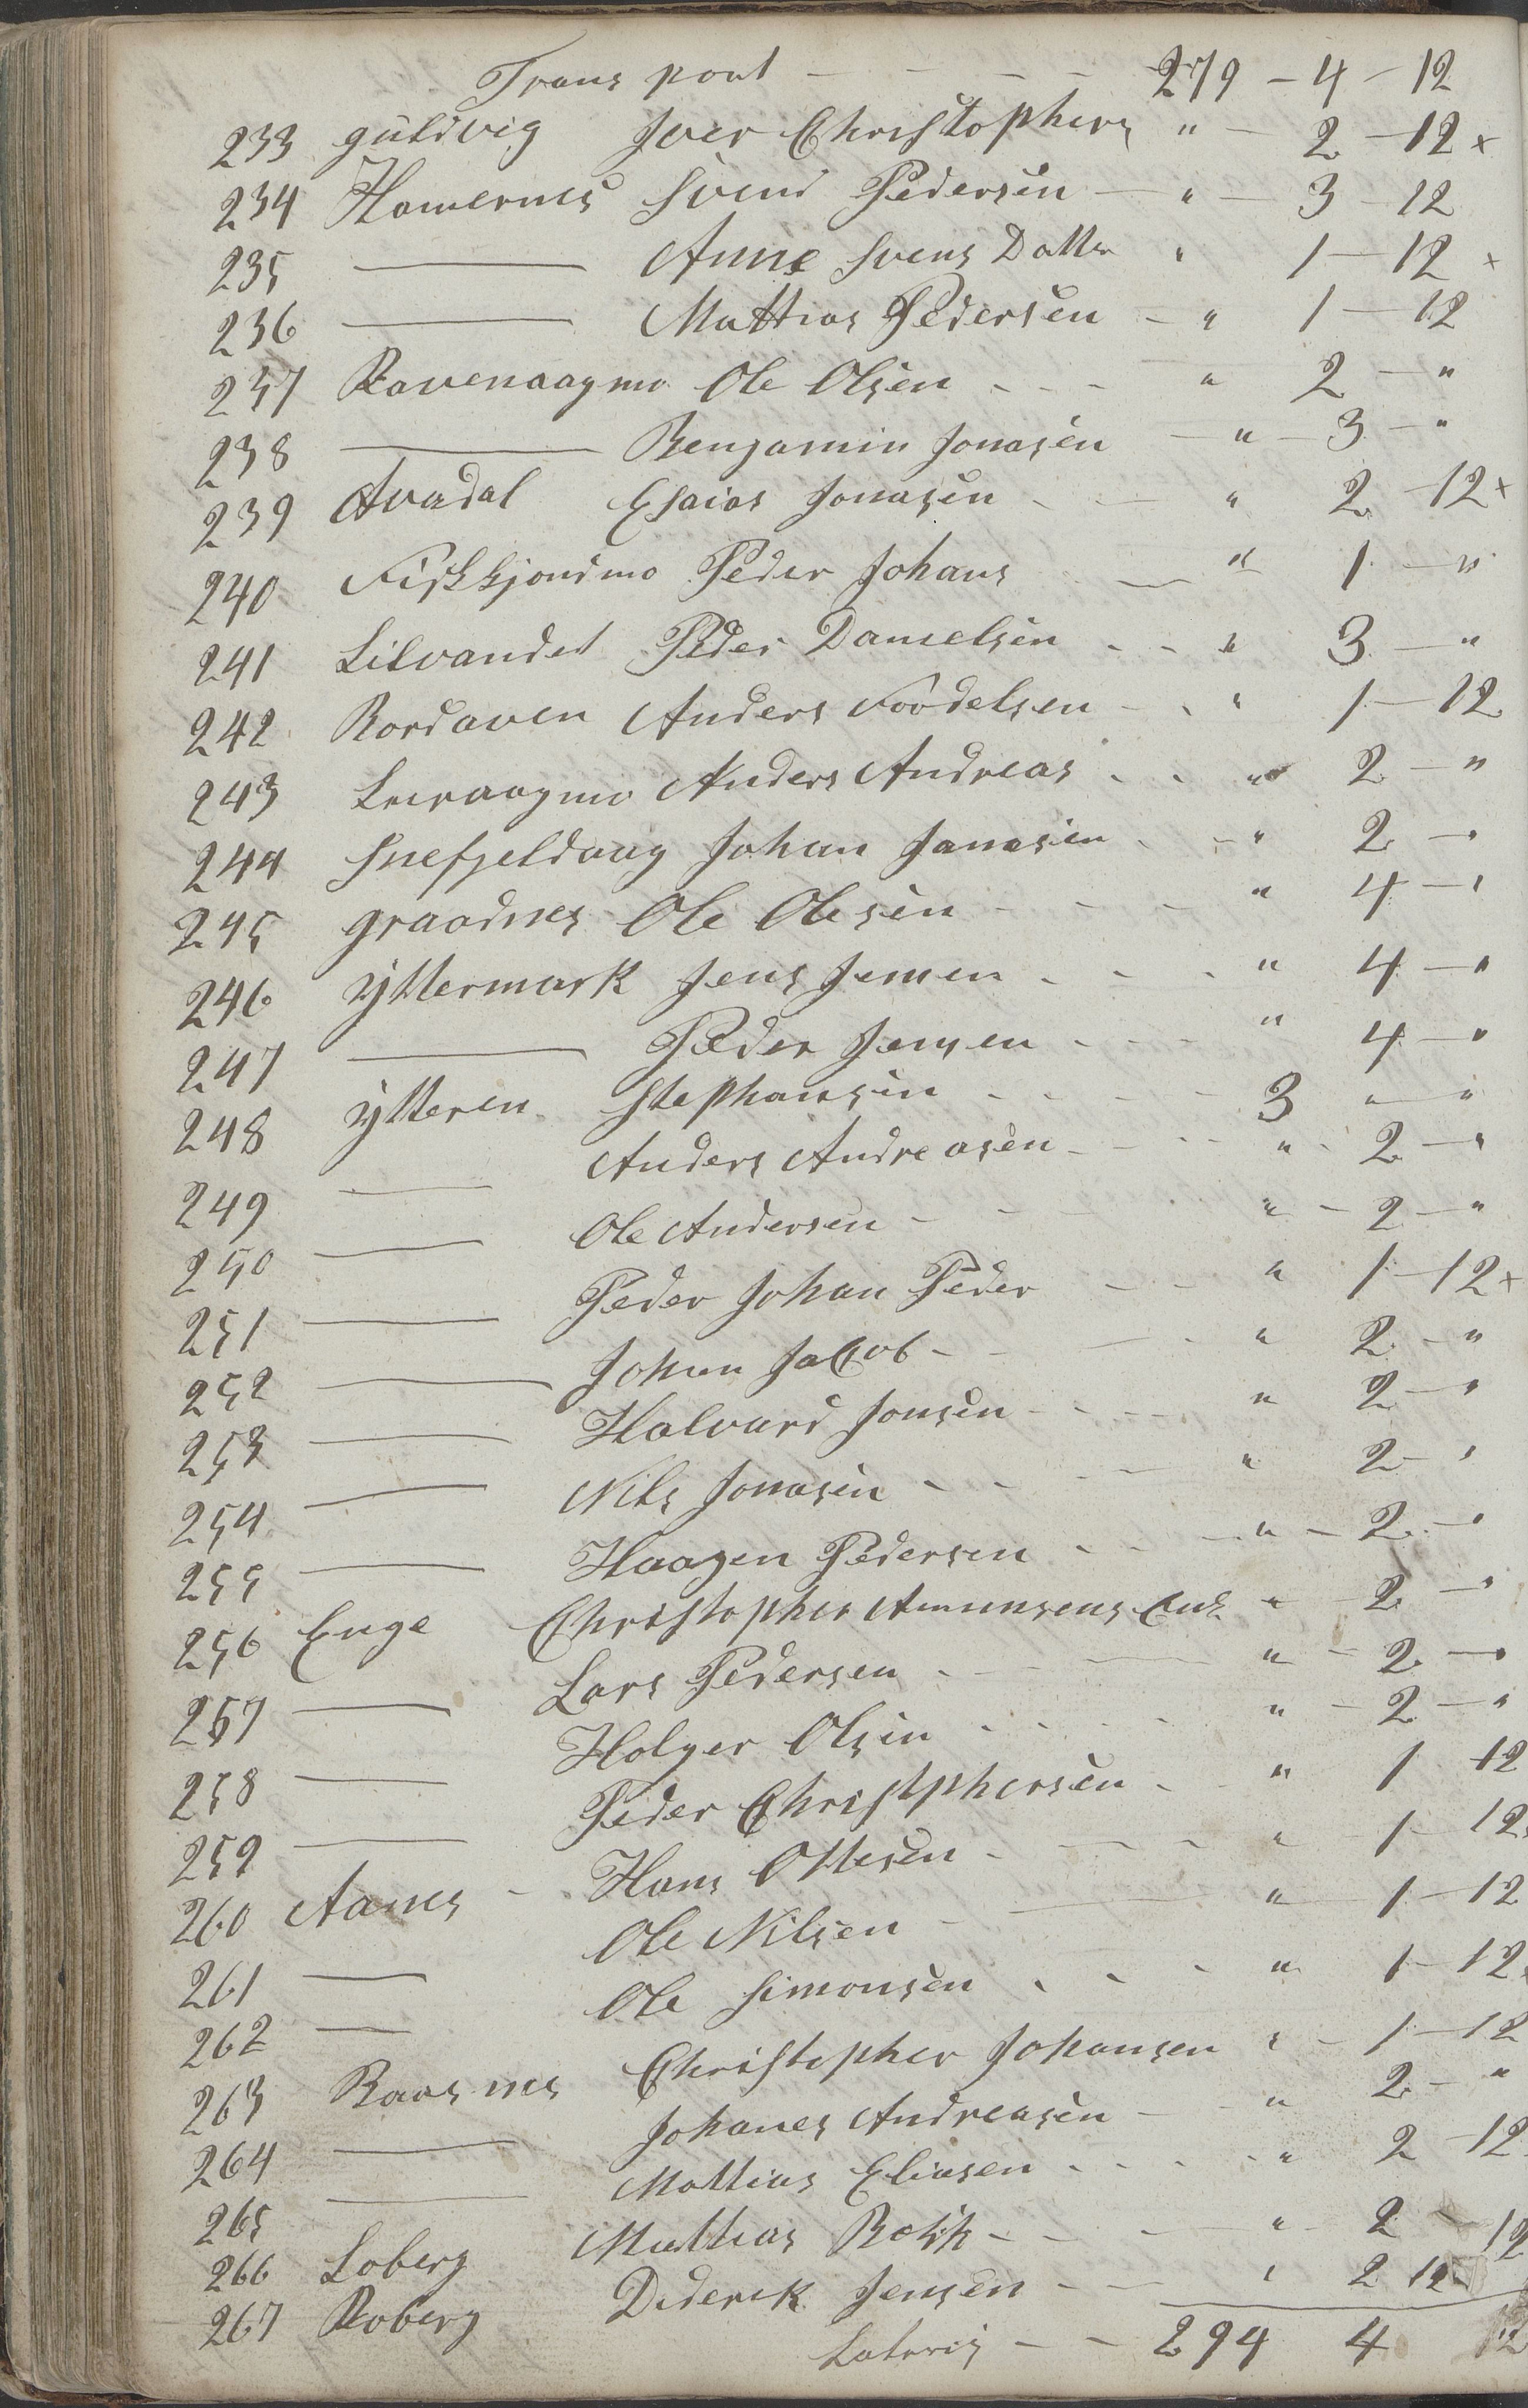 Transport - - - - 279 - 4 - 12
233 guldvig Iver Christophers " - 2 - 12 x
234 Hamernes Svend Pedersen - " - 3 - 12
235 — Anne Svens Datter " 1 - 12 x
236 — Mattias Pedersen - " 1 - 12
237 Ravenaagmo Ole Olsen - - - " 2 - "
238 — Benjamin Jonasen - " - 3 - "
239 Avadal Esaias Jonasen - - " 2 - 12 x
240 Fiskkjondmo Peder Johans — " 1 - "
241 Lilvandet Peder Danielsen - - " 3 - "
242 Rordaven Anders Foodelsen - - " 1 - 12
243 Leiraagmo Anders Andreas - - " 2 - "
244 Snefjeldaag Johan Janasen - - " 2 - "
245 graadnes Ole Olesen - - - " 4 - "
246 Yttermark Jens Jensen - - - " 4 - "
247 — Peder Jensen - - - " 4 - "
248 Ytteren Stephansen - - - - 3 " - "
249 — Anders Andreasen - - - " - 2 - "
250 — Ole Andersen - - - " - 2 - "
251 — Peder Johan Peder - - " 1 - 12 x
252 — Johan Jacob - - - " 2 - "
253 — Halvard Jonsen - - - " 2 - "
254 — Nils Jonasen - - - " 2 - "
255 — Haagen Pedersen - - - " - 2 - "
256 Enge Christopher Amunsens Enk " 2 - "
257 — Lars Pedersen - - - " - 2 - "
258 — Holger Olsen - - - - " - 2 - "
259 — Peder Christphersen - - " 1 12
260 Aanes - Hans Ottesen - - - " - 1 - 12
261 — Ole Nilsen - — " 1 - 12
262 — Ole Simonsen - - - " 1 - 12
263 Raasnes Christopher Johansen " - 1 - 12
264 — Johanes Andreasen - - " 2 - "
265 — Mattias Eliasen - - - - " 2 - 12
266 Loberg Matthias - - - " - 2 - 12
267 Roberg Diderik Jensen - - " 2 12
Lateris - - 294 4 12